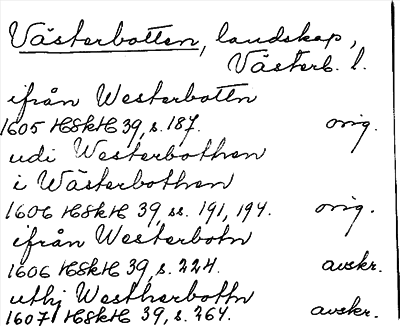 Västerbotten, landskap,
Västerb. l.
ifrån Westerbottn
1605 HSkH 39, s. 187. orig.
udi Westerbothen
i Wästerbothen
1606 HSkH 39, ss. 191, 194. orig.
ifrån Westerbotn
1606 HSkH 39, s. 224. avskr.
uthj Westherbottn
1607 HSkH 39, s. 264. avskr.